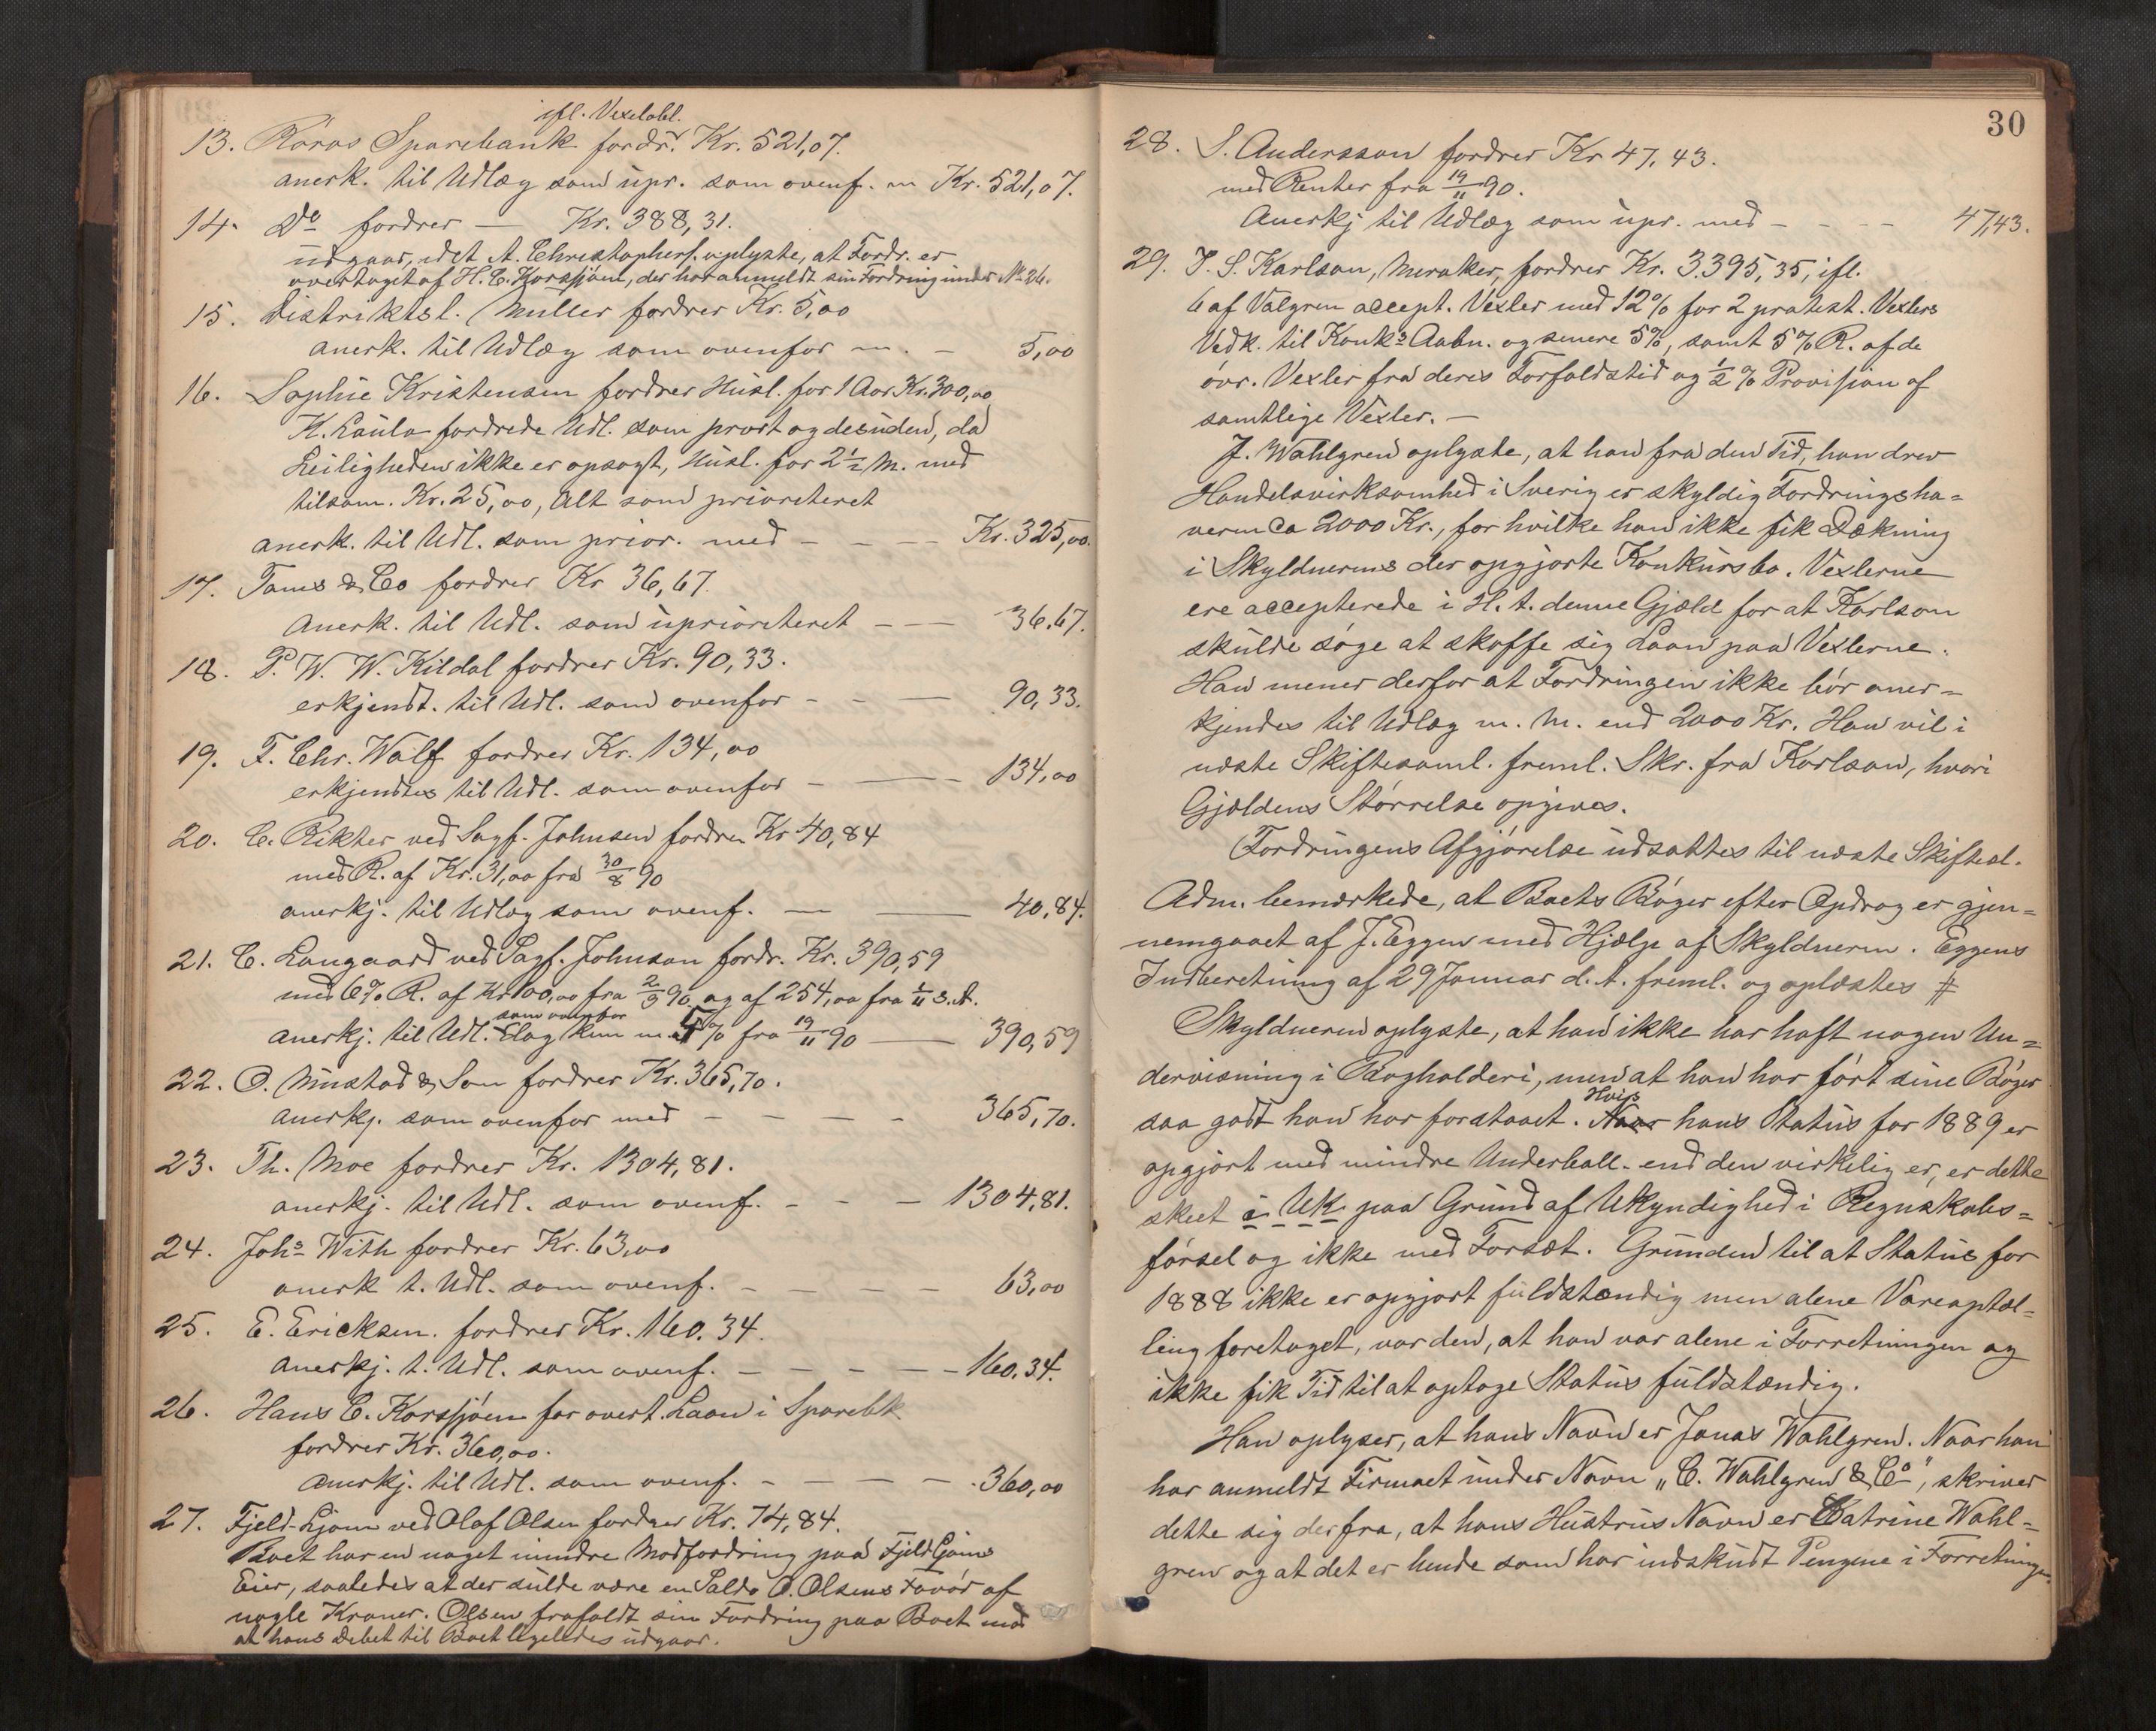 ifl. Vexelobl.
13. Röros Sparebank fordr. Kr. 521,07.
anerk. til Udlæg som upr. som ovenf. m Kr. 521,07.
14. Do fordrer — Kr. 388,31.
udgaar, idet A. Christophers. oplyste, at Fordr. er
overtaget af H. C. Korssjöen, der har anmeldt sin Fordring under No 26.
15. Distriktsl. Müller fordrer Kr. 5,00
anerk. til Udlæg som ovenfor m. — 5,00
16. Sophie Kristensen fordrer Husl. for 1 Aar Kr. 300,00
K. Laula fordrede Udl. som priort og desuden, da
Leiligheden ikke er opsagt, Husl. for 2½ M. med
tilsam. Kr. 25,00, Alt som prioriteret
anerk. til Udl. som prior. med - - - - Kr. 325,00.
17. Tams & Co fordrer Kr 36,67.
Anerk. til Udl. som uprioriteret - — 36.67.
18. P. W. W. Kildal fordrer Kr. 90,33.
erkjendt. til Udl. som ovenfor - - — 90,33.
19. F. Chr. Wolf fordrer Kr. 134,00
erkjendtes til Udl. som ovenfor - — - 134,00
20. C. Rikter ved Sagf. Johnsen fordrer Kr 40,84
med R. af Kr. 31,00 fra 30/8 90
anerkj. til Udlæg som ovenf. — — 40,84.
21. C. Langaard ved Sagf. Johnson fordr. Kr. 390,59
med 6% R. af Kr 100,00 fra 2/9 90 og af 254,00 fra 1/11 s. A.
som ovenfor
anerkj. til Udl. dog kun m. 5% fra 19/11 90 — 390,59
22. O. Mustad & Søn fordrer Kr. 365,70.
anerkj. som ovenfor med - - - - 365,70.
23. Th. Moe fordrer Kr. 1304,81.
anerkj. til Udl. som ovenf. - - - 1304,81.
24. Johs With fordrer Kr. 63,00
anerk t. Udl. som ovenf. - - - - 63,00
25. E. Ericksen. fordrer Kr. 160.34.
anerkj. t. Udl. som ovenf. - - - - - 160.34.
26. Hans C. Korssjöen for overt. Laan i Sparebk.
fordrer Kr. 360,00.
anerkj. til Udl. som ovenf. - - - - 360,00
27. Fjeld-Ljom ved Olaf Olsen fordrer Kr. 74,84.
Boet har en noget mindre Modfordring paa Fjeld Ljoms
Eier, saaledes at der skulde være en Saldo O. Olsens Favör af
nogle Kroner. Olsen frafaldt sin Fordring paa Boet mod
at hans Debet til Boet ligeledes udgaar.
30
28. S. Andersson fordrer Kr 47,43.
med Renter fra 19/11 90.
Anerkj til Udlæg som upr. med - - - - 47,43.
29. J. S. Karlson, Meraker, fordrer Kr. 3395,35, ifl.
6 af Valgren accept. Vexler med 12% for 2 protest. Vexlers
Vedk. til Konks Aabn. og senere 5%, samt 5% R. af de
övr. Vexler fra deres Forfaldstid og ½ % Provision af
samtlige Vexler. —
J. Wahlgren oplyste, at han fra den Tid, han drev
Handelsvirksomhed i Sverig er skyldig Fordringsha=
veren Ca 2000 Kr., for hvilke han ikke fik Dækning
i Skyldnerens der opgjorte Konkursbo. Vexlerne
ere accepterede i H. t. denne Gjæld for at Karlson
skulde söge at skaffe sig Laan paa Vexlerne.
Han mener derfor at Fordringen ikke bör aner=
kjendes til Udlæg m. M. end 2000 Kr. Han vil i
næste Skiftesaml. freml. Skr. fra Karlson, hvori
Gjældens Störrelse opgives.
Fordringens Afgjörelse udsattes til næste Skiftesl.
Adm. bemærkede, at Boets Böger efter Opdrag er gjen=
nemgaaet af J. Eggen med Hjælp af Skyldneren. Eggens
Indberetning af 29 Januar d. A. freml. og oplæstes #
Skyldneren oplyste, at han ikke har haft nogen Un=
dervisning i Bogholderi, men at han har fört sine Böger
Hvis
saa godt han har forstaaet. Naar hans Status for 1889 er
opgjort med mindre Underball. end den virkelig er, er dette
skeet i Uk paa Grund af Ukyndighed i Regnskabs=
försel og ikke med Forsæt. Grunden til at Status for
1888 ikke er opgjort fuldstændig men alene Vareoptæl=
ling foretaget, var den, at han var alene i Forretningen og
ikke fik Tid til at optage Status fuldstændig.
Han oplyser, at hans Navn er Jonas Wahlgren. Naar han
har anmeldt Firmaet under Navn "C. Wahlgren & Co", skriver
dette sig derfra, at hans Hustrus Navn er Catrine Wahl=
gren og at det er hende som har indskudt Pengene i Forretningen.